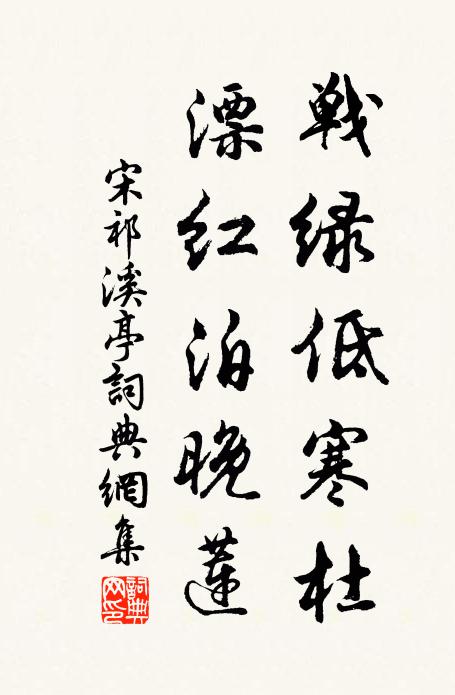 戦緑低寒杜
漂紅泊晚蓮
宋祁溪亭詞典網集
詞典网印